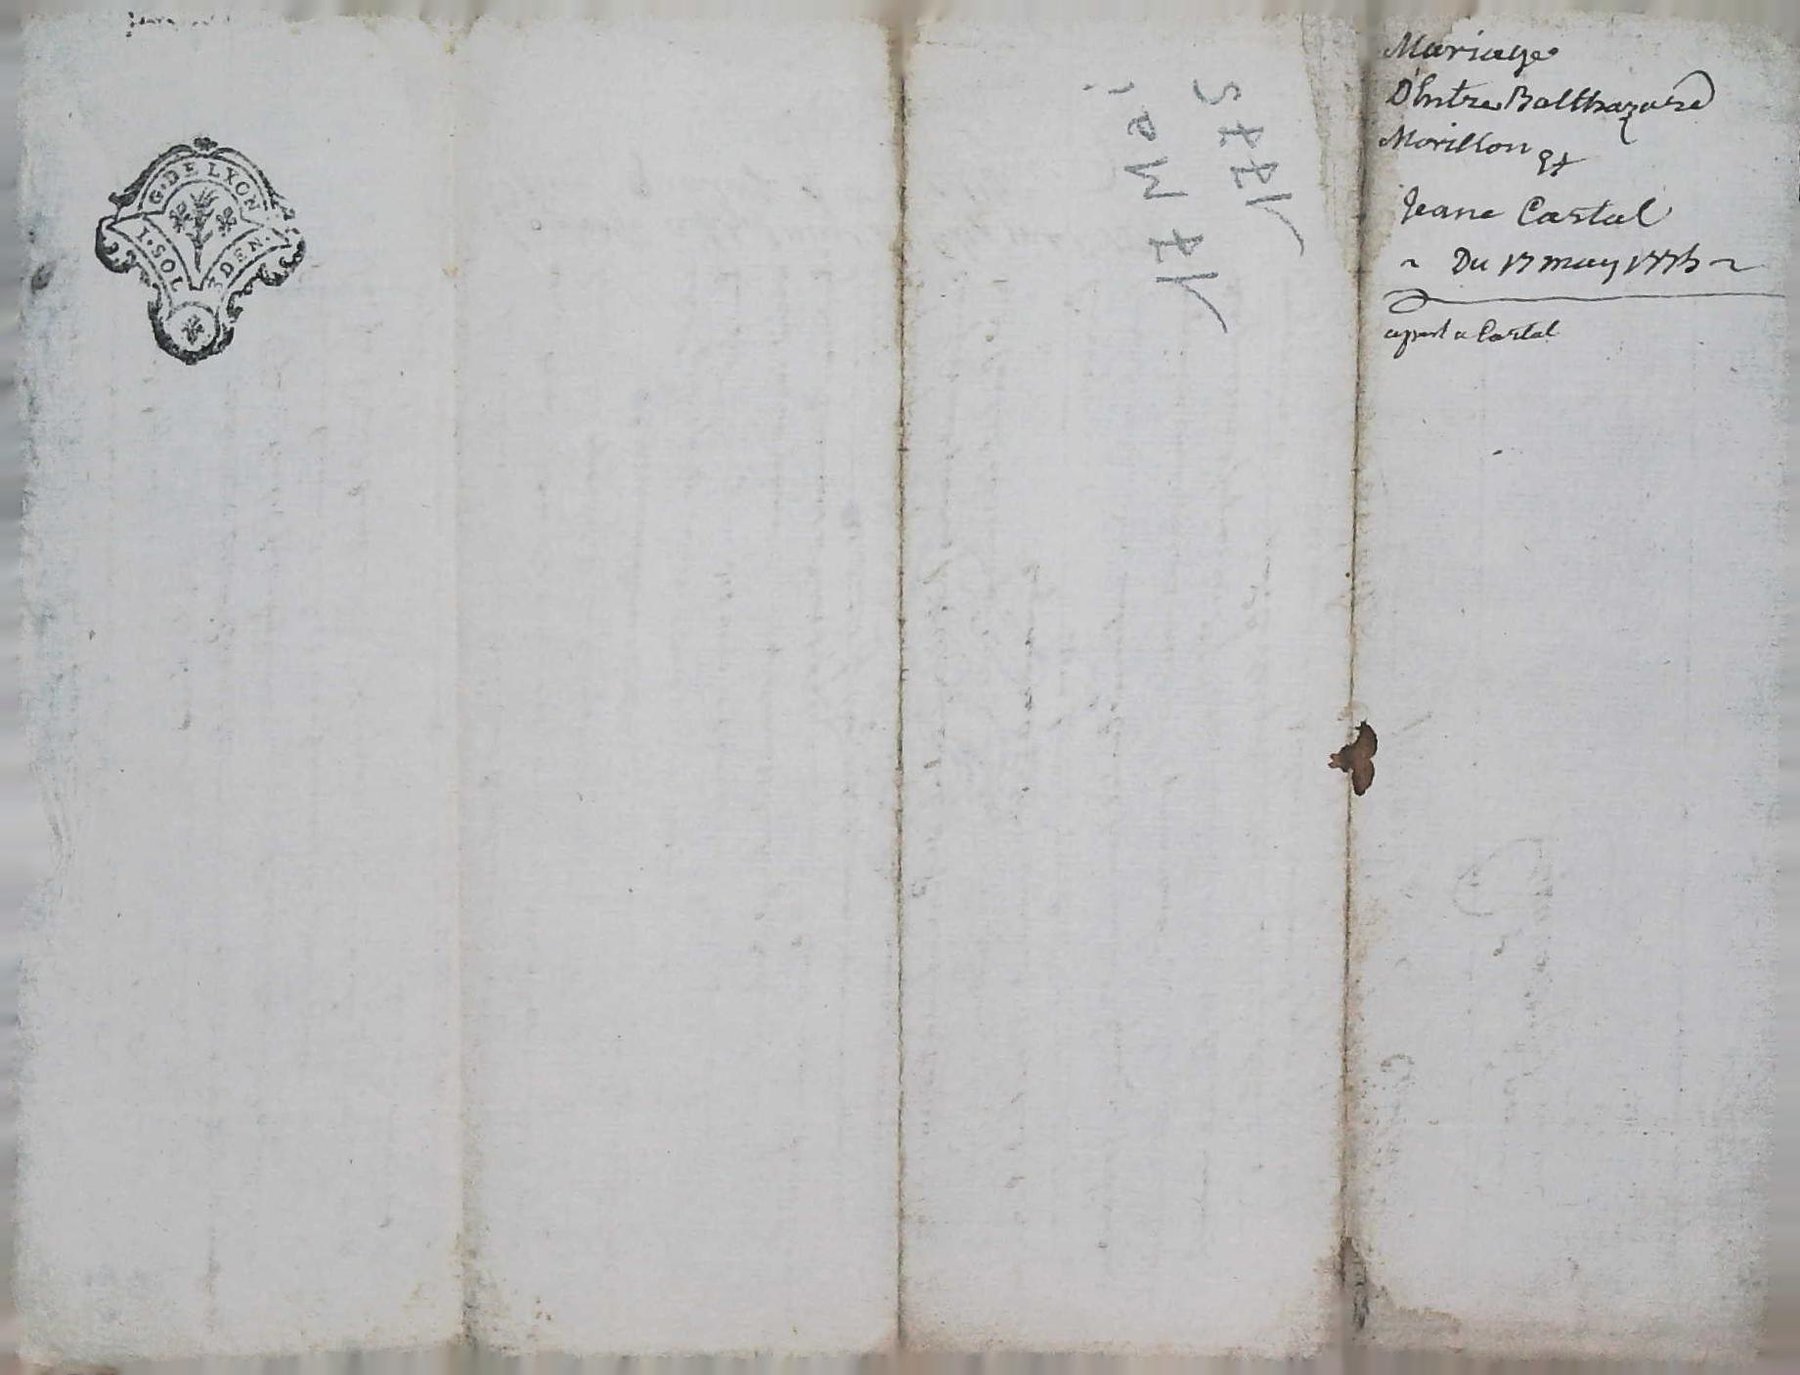 G. DE LYON
1. SOL 3 DEN.
17 Mai
1775
Mariage
D'Entre Balthazard
Morillon Et
Jeane Castal
~ Du 17 may 1775 ~
appart a Castal